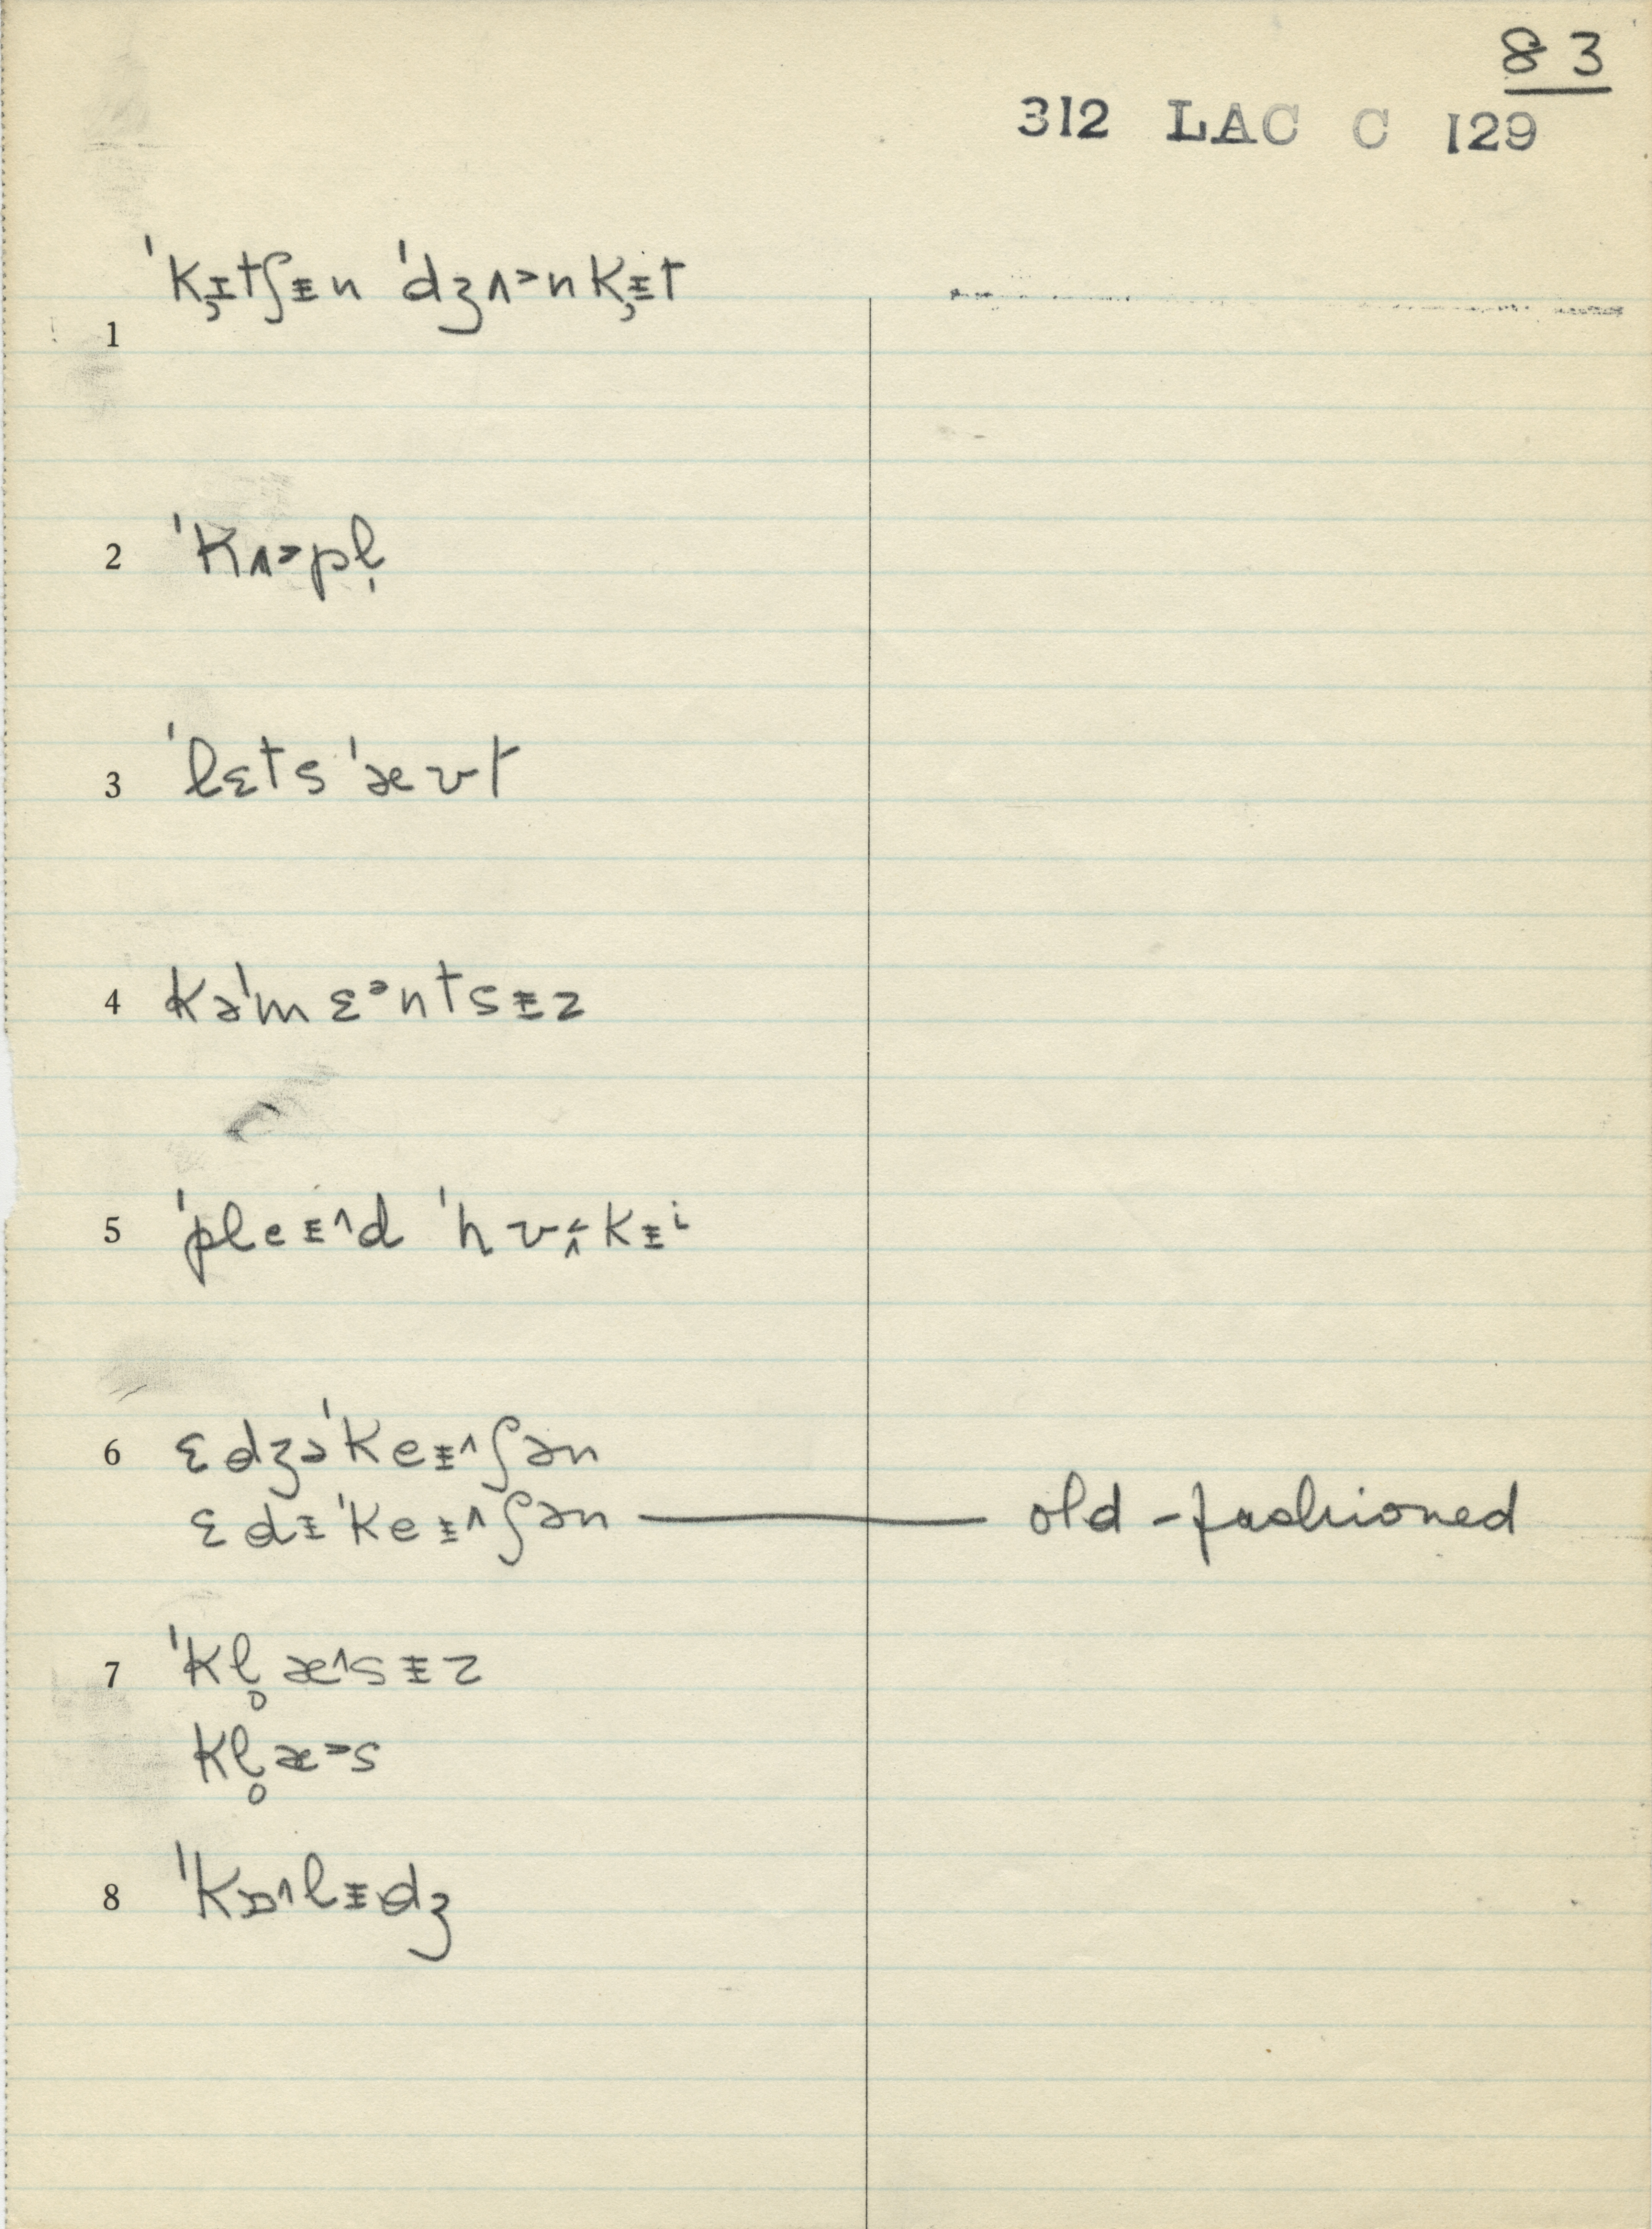 83
312 LAC C 129
1 ˈk̡ɪtʃᵻn ˈdʒʌ˃nk̡ᵻt
2 ˈkʌ˃pl̩
3 ˈlɛts ˈæʊt
4 kəˈmɛᵊntsᵻz
5 ˈpleᵻ˄d ˈhʊ̭˂kᵻⁱ
6 ɛdʒəˈkeᵻ˄ʃən
ɛdᵻˈkeᵻ˄ʃən — old-fashioned
7 ˈkl̥æ˄sᵻz
kl̥æ˃s
8 ˈkɒ˄lᵻdʒ